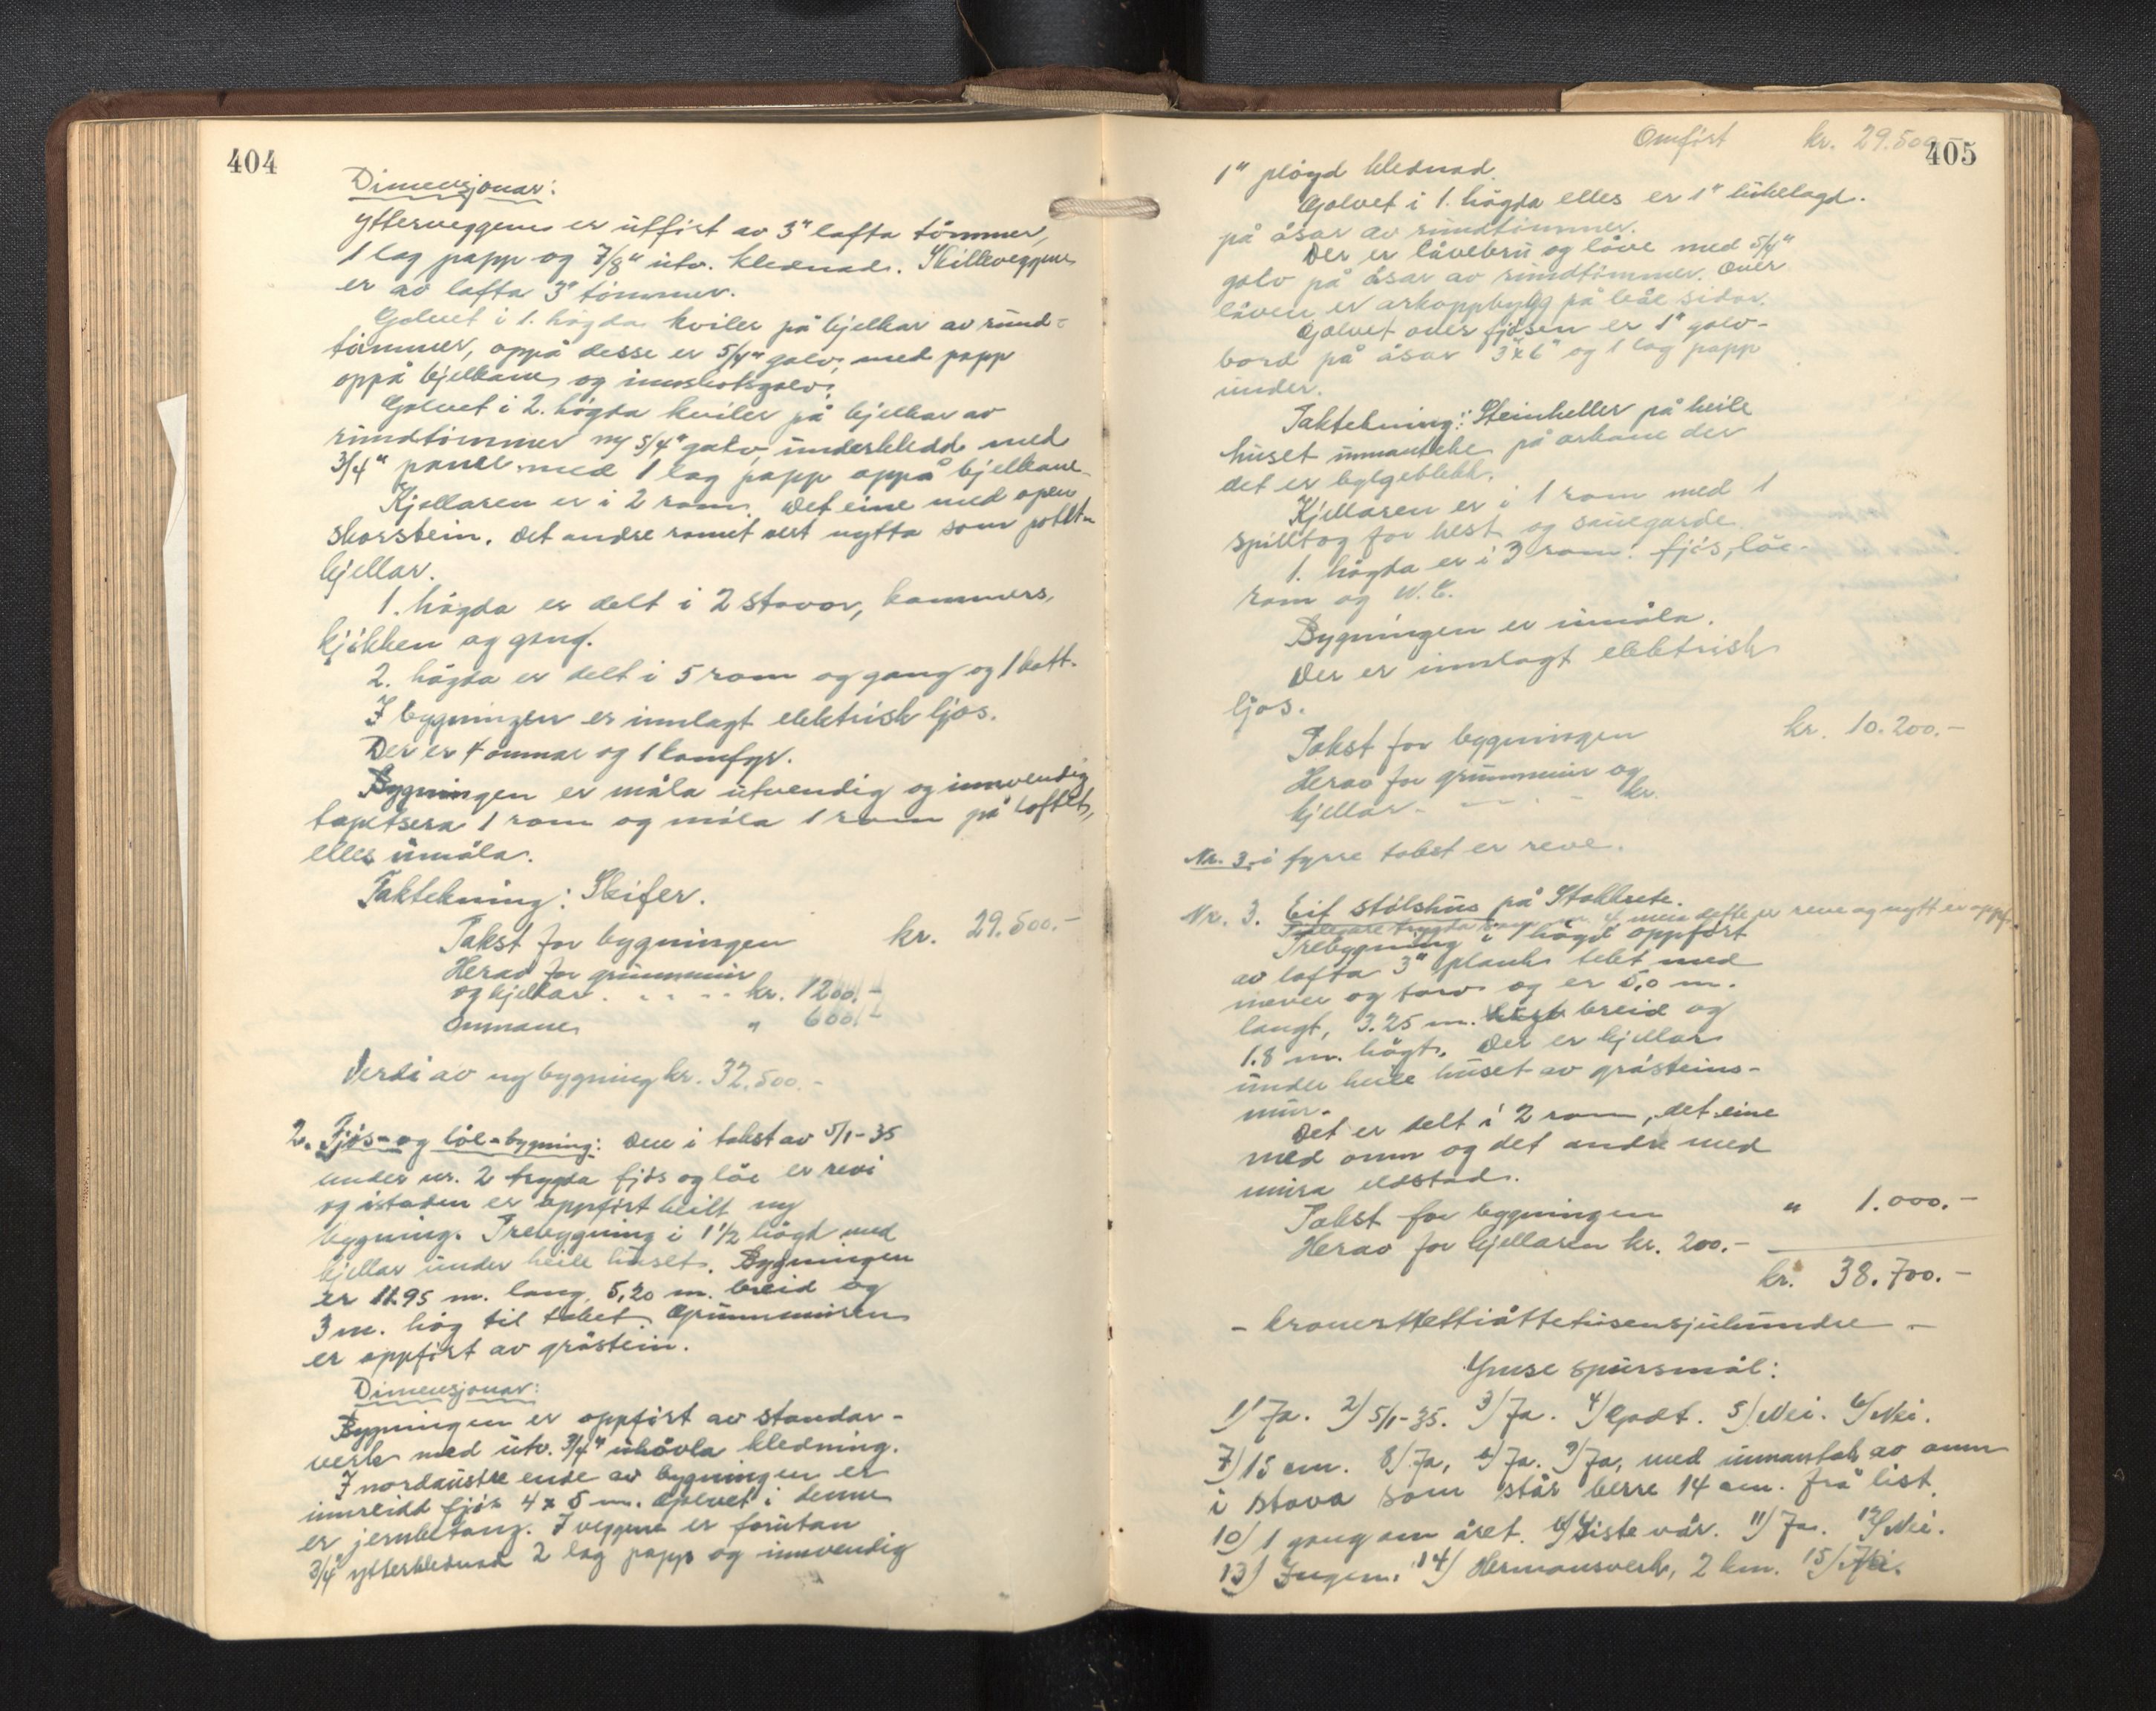 404
Dimensjonar:
Ytterveggene er utfört av 3" lafta tömmer,
1 lag papp og 7/8" utv. klednad. Skilleveggene
er av lafta 3" tömmer.
Golvet i 1. högda kviler på bjelkar av rund-
tömmer, oppå desse er 5/4" golv, med papp
oppå bjelkane og innskotsgolv.
Golvet i 2. högda kviler på bjelkar av
rundtömmer m/ 5/4" golv, underkledd med
3/4" panel med 1 lag papp oppå bjelkane.
Kjellaren er i 2 rom. Det eine med open
skorstein. Det andre romet vert nytta som potet-
kjellar.
1. högda er delt i 2 stovor, kammers,
kjökken og gang.
2. högda er delt i 5 rom og gang og 1 kott.
I bygningen er innlagt elektrisk ljos.
Der er 4 omnar og 1 komfyr.
Bygningen er måla utvendig og innvendig
tapetsera 1 rom og måla 1 rom på loftet,
elles umåla.
Taktekning: Skifer.
Takst for bygningen kr. 29.500.-
Herav for grunnmur
og kjellar. . . - - kr. 1200.-
Omnane " 600.-
Verdi av ny bygning kr. 32.500.-
2. Fjös- og löe-bygning: Den i takst av 5/1-35
under nr. 2 trygda fjös og löe er revi
og istaden er oppfört heilt ny
bygning. Trebygning i 1 1/2 högd med
kjellar under heile huset. Bygningen
er 11.95 m. lang, 5,20 m. breid og
3 m. høg til taket. Grunnmuren
er oppfört av gråstein.
Dimensjonar:
Bygningen er oppfört av standar-
verk med utv. 3/4" uhövla kledning.
I nordaustre ende av bygningen er
innreidd fjös 4 x 5 m. Golvet i denne
er jernbetong. I veggene er forutan
3/4" ytterklednad 2 lag papp og innvendig
405
Omfört kr. 29.500
1" plögd klednad.
Golvet i 1. högda elles er 1" lukelagd.
på åsar av rundtömmer.
Der er låvebru og låve med 5/4"
golv på åsar av rundtömmer. Over
låven er arkoppbygg på båe sidor.
Golvet over fjösen er 1" golv-
bord på åsar 3" x 6" og 1 lag papp
under.
Taktekning: Steinheller på heile
huset unnanteke på arkane der
det er bylgeblekk.
Kjellaren er i 1 rom med 1
spilltog for hest og sauegarde.
1. högda er i 3 rom: fjös, löe-
rom og W.C.
Bygningen er umåla.
Der er innlagt elektrisk
ljos.
Takst for bygningen kr. 10.200.-
Herav for grunnmur og
kjellar. - - . - kr.
Nr. 3. i fyrre takst er reve.
Nr. 3. Eit stölshus på Stokksete.
Tidlegare trygda nr. 4, men dette er reve og nytt er oppf.
Trebygning i 1 högd oppfört
av lafta 3" plank tekt med
never og torv og er 5,0 m.
langt, 3.25 m. breid og
1.8 m. högt. Der er kjellar
under heile huset av gråsteins-
mur.
Det er delt i 2 rom, det eine
med omn og det andre med
mura eldstad.
Takst for bygningen " 1.000.-
Herav for kjellaren kr. 200.-
kr. 38.700.-
- kronertrettiåttetusensjuhundre -
Ymse spursmål:
1) Ja. 2) 5/1-35. 3) Ja. 4) Godt. 5) Nei. 6) Nei.
7) 15 cm. 8) Ja, b) Ja. 9) Ja, med unnantak av omn
i stova som står berre 14 cm. frå list.
10) 1 gong om året. b) Siste vår. 11) Ja. 12) Nei.
13) Ingen. 14) Hermansverk, 2 km. 15)